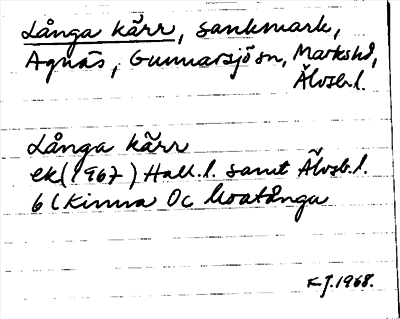 Långa kärr, sankmark,
Agnäs, Gunnarsjö sn, Markshd,
Älvsb.l.
Långa kärr
ek(1967) Hall.l. samt Älvsb.l.
6 C Kinna 0c
K.J.1968.